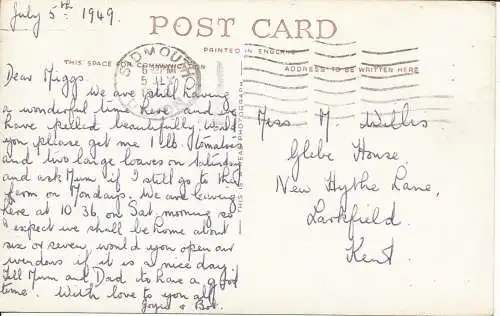 July 5th 1949.
POST CARD
PRINTED IN ENGLAND
THIS SPACE FOR COMMUNICATION
ADDRESS TO BE WRITTEN HERE
SIDMOUTH
THIS IS A REAL PHOTOGRAPH
Dear Miggs
We are still having
a wonderful time here and we
have pelled beautifully. Would
you please get me 1 lb. tomatoes
and two large loaves on Saturday
and ask Mum if I still go to the
farm on Mondays. We are leaving
here at 10 36, on Sat. morning so
I expect we shall be home about
six or seven, would you open our
windows if it is a nice day.
Tell Mum and Dad to have a good
time. With love to you all
Joyce & Bob.
Miss M Willis
Glebe House,
New Hythe Lane,
Larkfield.
Kent.